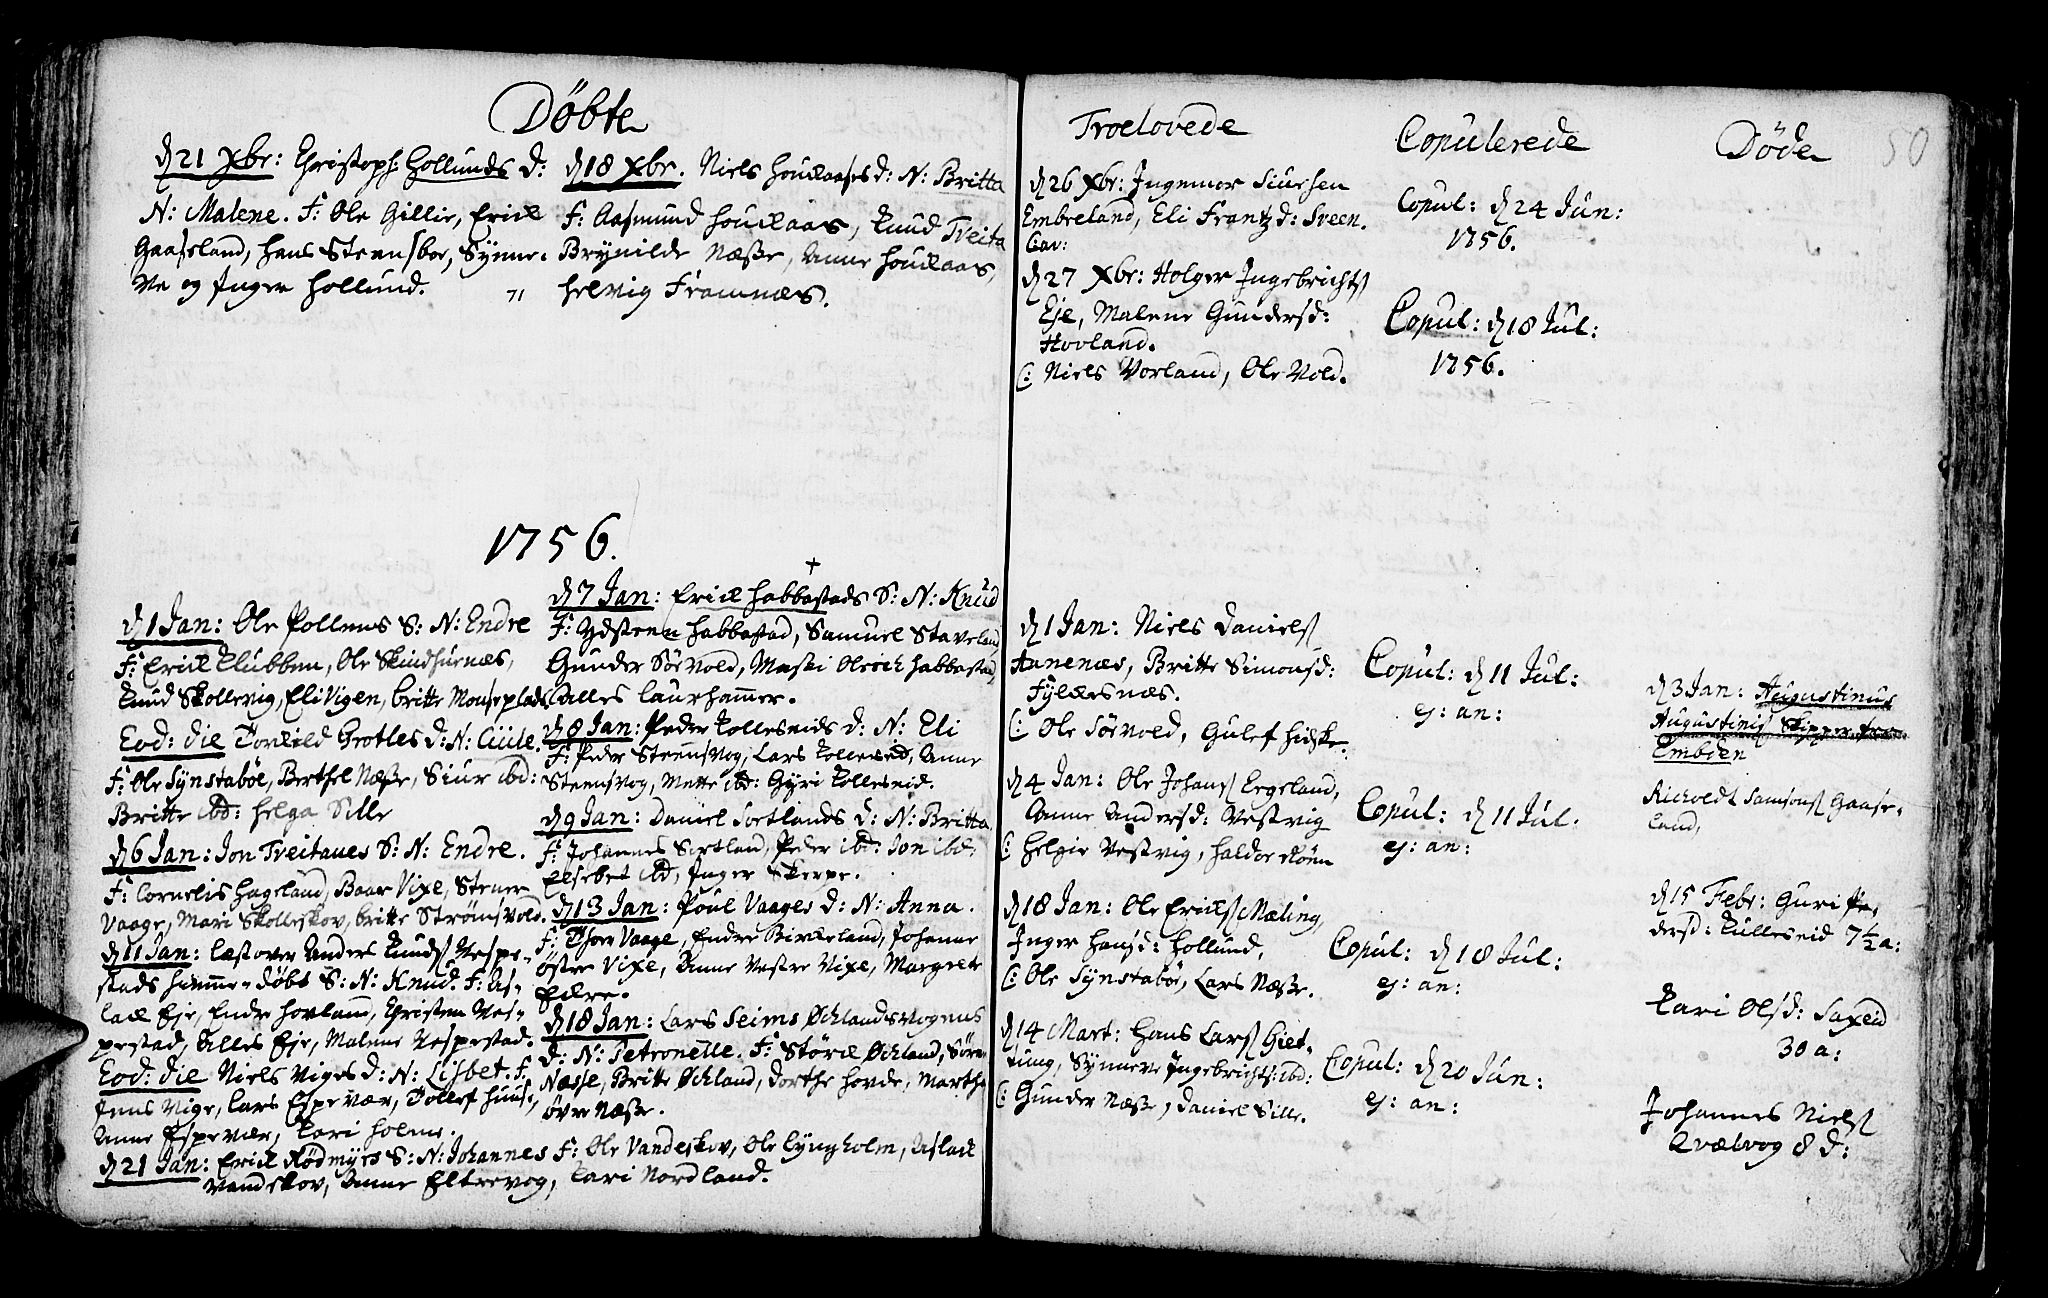 Døbte
d 21 Xbr: Christoph: Hollunds D:
N: Malene. F: Ole Gillie, Erick
Gaaseland, Hans Steensboe, Synne-
ve og Inger Hollund.
71
d 18 Xbr. Niels Houkaases D: N: Britta
F: Aasmund Houkaas, Knud Tveita
Brynilde Næsse, Anne Houkaas,
Helvig Framnæs.
1756.
d 1 Jan: Ole Pollens S: N: Endre
F: Erick Klubben, Ole Skindhuenæs,
Knud Skollevig, Eli Vigen, Britte Monseplads
Eod: die Torkild Grotles D: N: Cicile.
F: Ole Synstabøe, Berthel Næsse, Siur ibd:
Britte ibd: Helga Sille
d 6 Jan: Jon Tveitaues S: N: Endre.
F: Cornelis Hageland, Baar Vixe, Stener
Vaage, Mari Skolleskov, Britte Strømsvold.
d 11 Jan: læst over Anders Knuds Vespe-
stads hiemme-døbt S: N: Knud. F: As-
lack Eje, Endre Hovland, Christen Ves-
pestad, Zilles Eje, Malene Vespestad.
Eod: die Niels Viges D: N: Lisbet. F:
Jens Vige, Lars Espevær, Tollef Huuse,
Anne Espevær, Kari Holme.
d 21 Jan: Erick Rødmyrs S: N: Johannes F: Ole Vandeskov, Ole Lyngholm, Aslack
Vandskov, Anne Eltrevog, Kari Nordland.
+
d 7 Jan: Erick Habbestads S: N: Knud
F: Østeen Habbestad, Samuel Staveland
Gunder Sørvold, Habbestad
Zilles Laurhammer.
d 8 Jan: Peder Kollesneids D: N: Eli
F: Peder Steensvog, Lars Kollesneid, Anne
Steensvog, Mette ibd: Gyri Kollesneid.
d 9 Jan: Daniel Sortlands D: N: Britta
F: Johannes Sortland, Peder ibd: Jon ibd:
Elsebet ibd, Inger Skerpe.
d 13 Jan: Poul Vaages D: N: Anna.
F: Thoer Vaage, Endre Birkeland, Johanne
Øster Vixe, Anne Vestre Vixe, Margrete
Eikre.
d 18 Jan: Lars Seims Øchlandsvogens
D: N: Petronelle. F: Størck Øchland, Søren
Næsse, Britte Øchland, Dorthe Hovde, Martha
Øvre Næsse.
Troelovede
d 26 Xbr: Ingemor Siursen
Embreland, Eli Frantzd: Sveen.
Cav:
d 27 Xbr: Holger Ingebrichts
Eje, Malene Gundersd:
Hovland.
C: Niels Vorland, Ole Vold.
d 1 Jan: Niels Daniels
Annenæs, Britte Simonsd:
Fylkesnæs.
C: Ole Sørvold, Gulef Hidske.
d 4 Jan: Ole Johans Legeland,
Anne Andersd: Vestvig
C: Helgie Vestvig, Haldor Røen
d 18 Jan: Ole Ericks Mæling,
Inger Hansd: Hollund,
C: Ole Synstabøe, Lars Næsse.
d 14 Mart: Hans Lars Giet-
tung, Synneve Ingebrichts: ibd:
C: Gunder Næsse, Daniel Sille.
Copulerede
Copul: d 24 Jun:
1756.
Copul: d 18 Jul:
1756.
Copul: d 11 Jul:
ej: an:
Copul: d 11 Jul:
ej: an:
Copul: d 18 Jul:
ej: an:
Copul: d 20 Jun:
ej: an:
Døde
50
d 3 Jan: Augustinus
Augustinis Skipper fra
Embden
Richoldt Samsons Gaase-
land,
d 15 Febr: Guri Pe-
dersd: Kulleseid 7 1/2 a:
Kari Olsd: Saxeid
30 a:
Johannes Niels
Qvalvog 8 d: